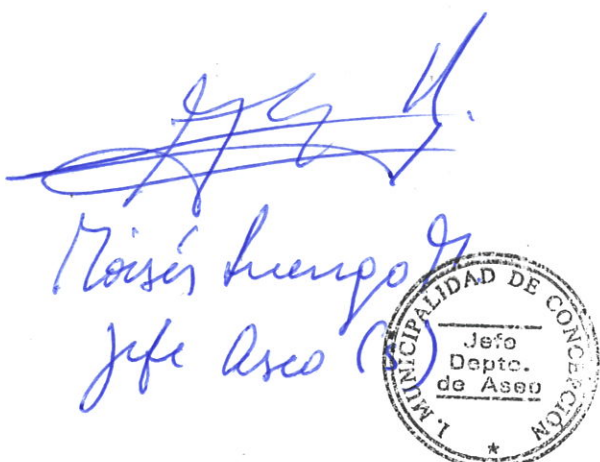 Moisés Luengo M
Jefe Aseo (S)
I. MUNICIPALIDAD DE CONCEPCIÓN
Jefe
Depto.
de Aseo